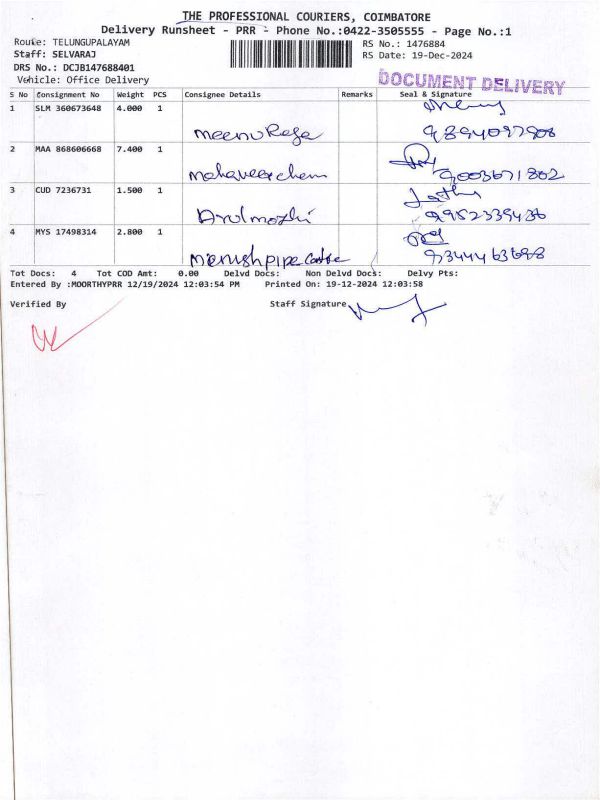 THE PROFESSIONAL COURIERS, COIMBATORE
Delivery Runsheet - PRR - Phone No.:0422-3505555 - Page No.:1
Route: TELUNGUPALAYAM
RS No.: 1476884
Staff: SELVARAJ
RS Date: 19-Dec-2024
DRS No.: DCJB147688401
Vehicle: Office Delivery
DOCUMENT DELIVERY
S No Consignment No Weight PCS Consignee Details Remarks Seal & Signature
1 SLM 360673648 4.000 1
meenu Raja
2 MAA 868606668 7.400 1
mahaveerchem 9003671802
3 CUD 7236731 1.500 1
Arulmozhi 9952339436
4 MYS 17498314 2.800 1
manish pipe 9344463688
Tot Docs: 4 Tot COD Amt: 0.00 Delvd Docs: Non Delvd Docs: Delvy Pts:
Entered By :MOORTHYPRR 12/19/2024 12:03:54 PM Printed On: 19-12-2024 12:03:58
Verified By Staff Signature